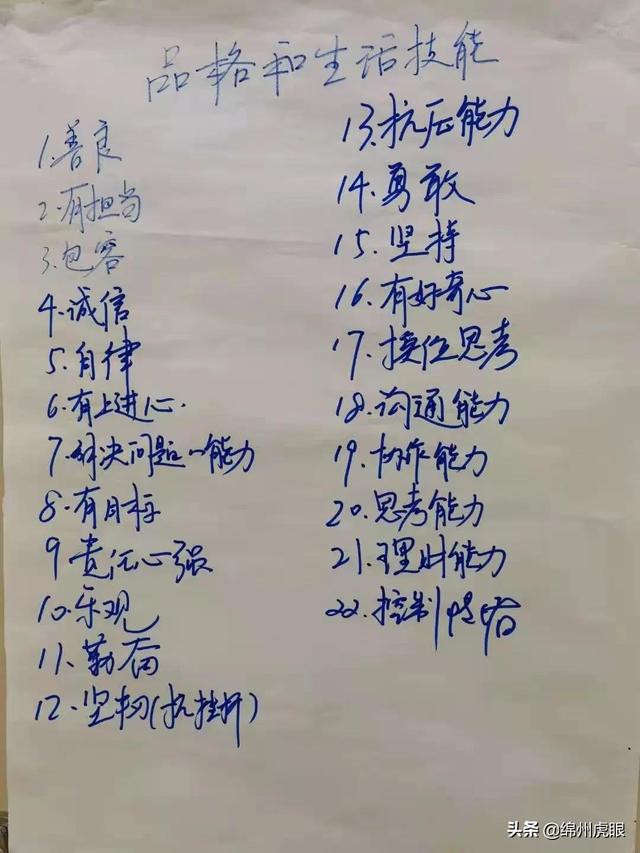 品格和生活技能
1.善良
2.有担当
3.包容
4.诚信
5.自律
6.有上进心.
7.解决问题的能力
8.有目标
9.责任心强
10.乐观
11.勤奋
12.坚韧(抗挫折)
13.抗压能力
14.勇敢
15.坚持
16.有好奇心
17.换位思考
18.沟通能力
19.协作能力
20.思考能力
21.理财能力
22.控制情绪
头条 @绵州虎眼